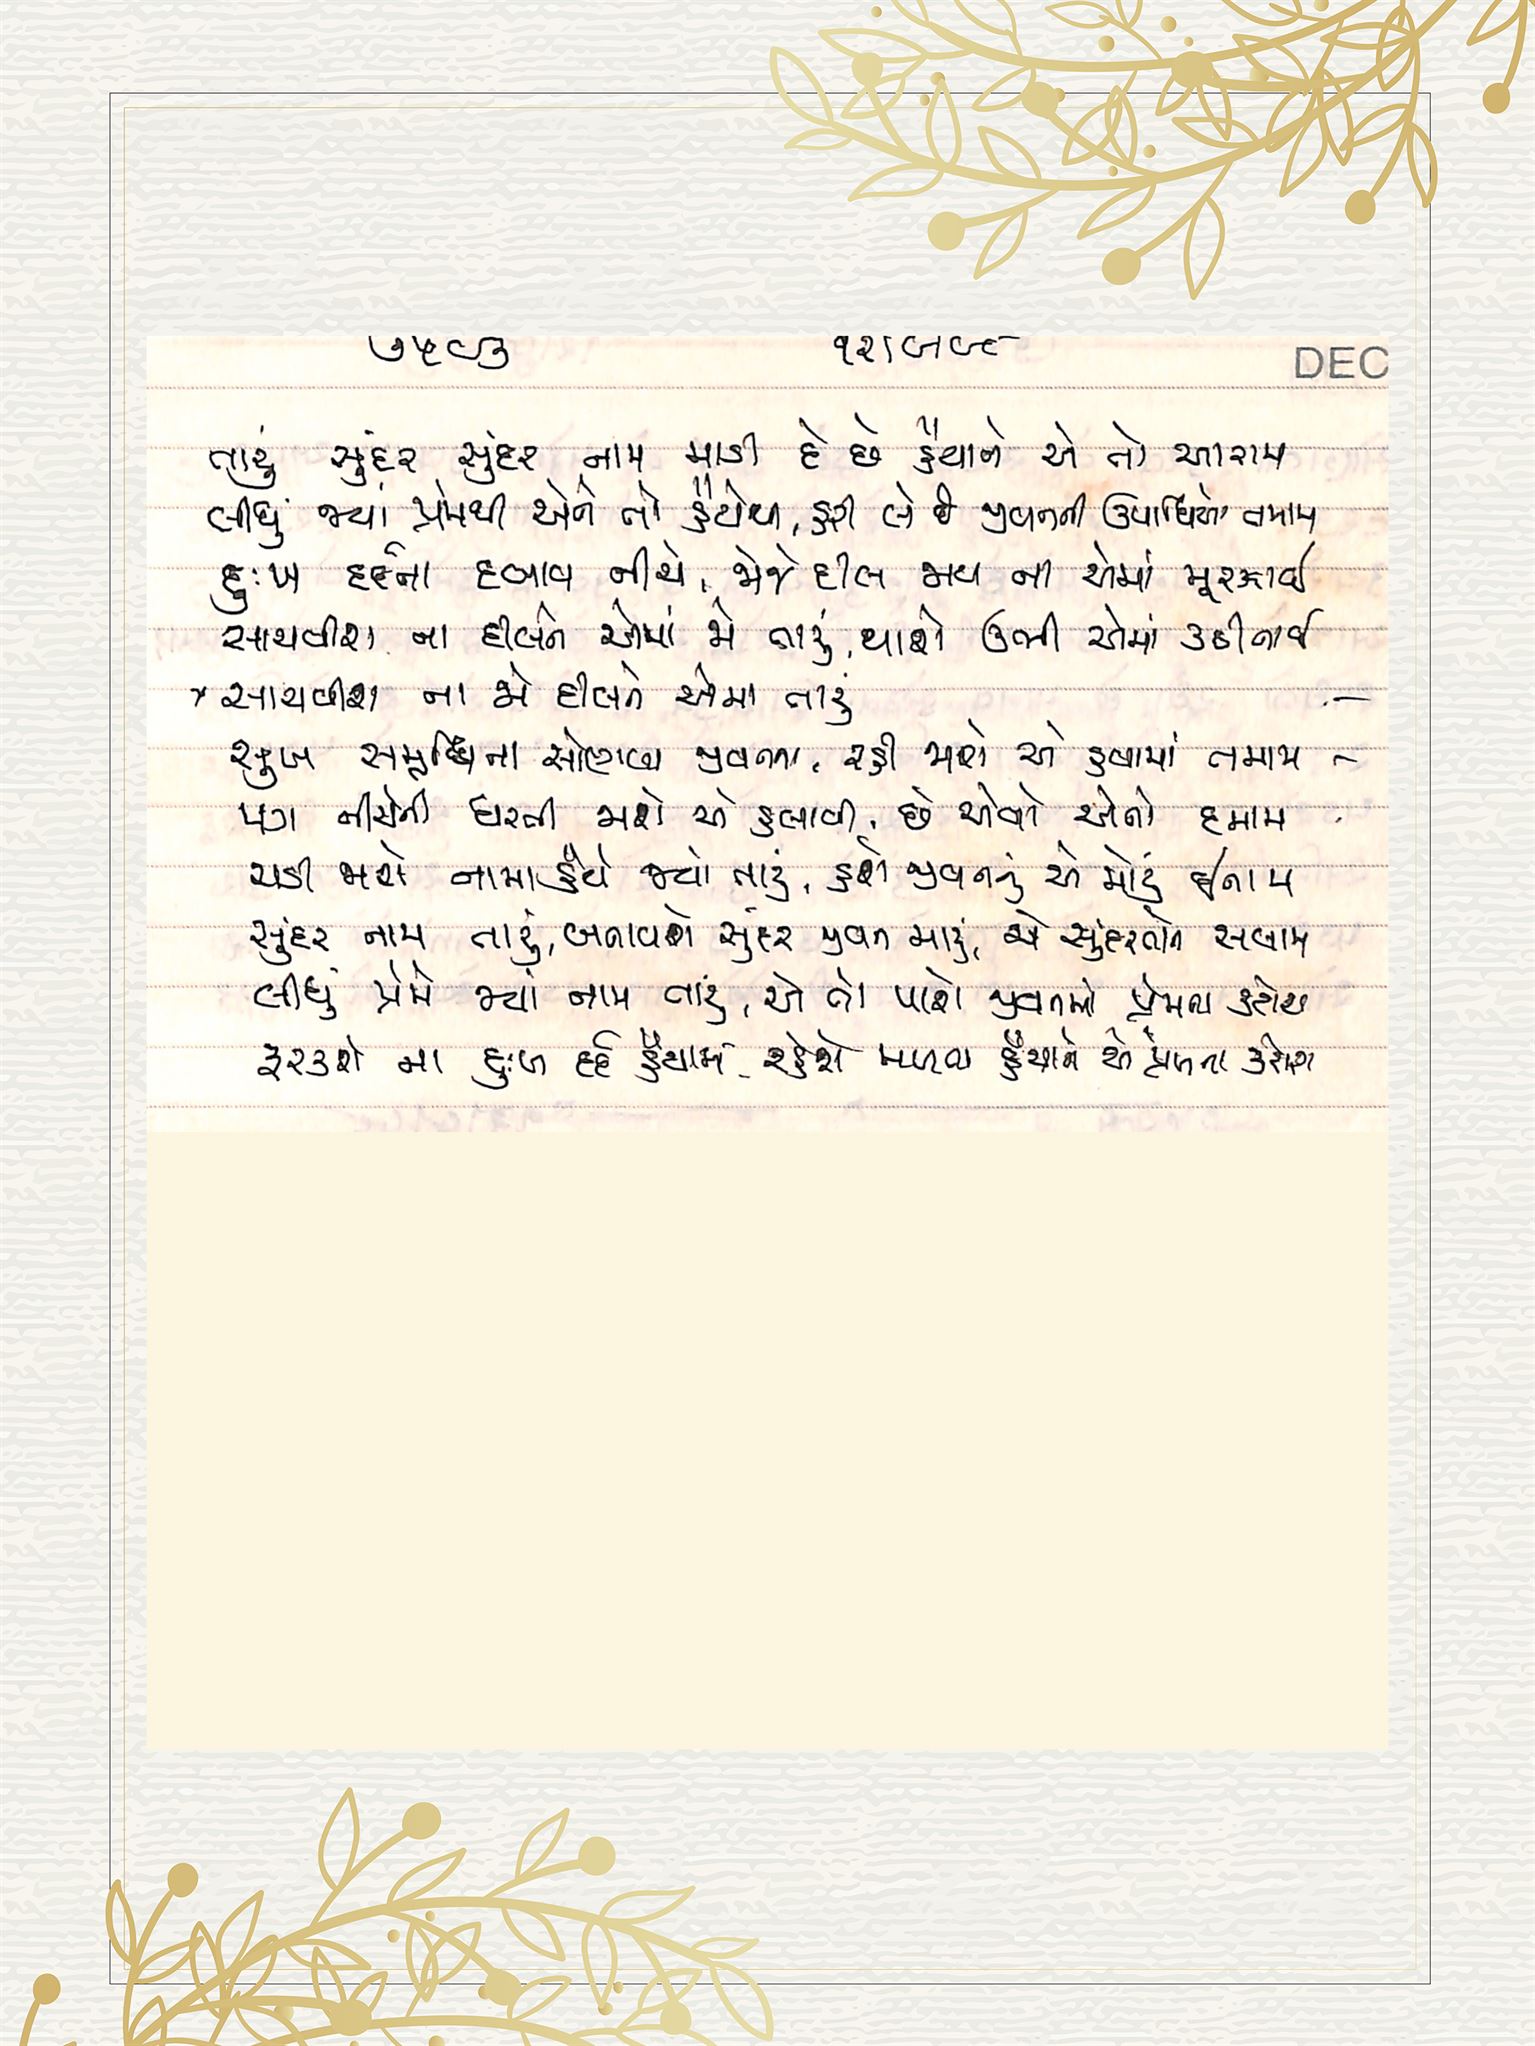 ૭૫૯૩ ૧૨।૯૯ DEC
તારું સુંદર સુંદર નામ માડી દે છે હૈયાને એ તો આરામ
લીધું જ્યાં પ્રેમથી એને તો હૈયેથી, હરી લે છે જીવનની ઉપાધિઓ તમામ
દુઃખ દર્દના દબાવ નીચે, જોજે દીલ જાય ના એમાં મૂરઝાઈ
સાચવીશ ના દીલને એમાં જો તારું, થાશે ઉભી એમાં કઠીનાઈ
સાચવીશ ના જો દીલને એમા તારું
સુખ સમૃદ્ધિના સોણલા જીવનના, રહી જાશે એ હવામાં તમામ
પગ નીચેની ધરતી જાશે એ હલાવી, છે એવો એનો દમામ
ચડી જાશે નામ હૈયે જ્યાં તારું, હશે જીવનનું એ મોટું ઈનામ
સુંદર નામ તારું, બનાવશે સુંદર જીવન મારું, એ સુંદરતાને સલામ
લીધું પ્રેમે જ્યાં નામ તારું, એ તો પાશે જીવનમાં પ્રેમના
ફરકશે ના દુઃખ દર્દ હૈયામાં, રહેશે મળતા હૈયાને એ પ્રેમના